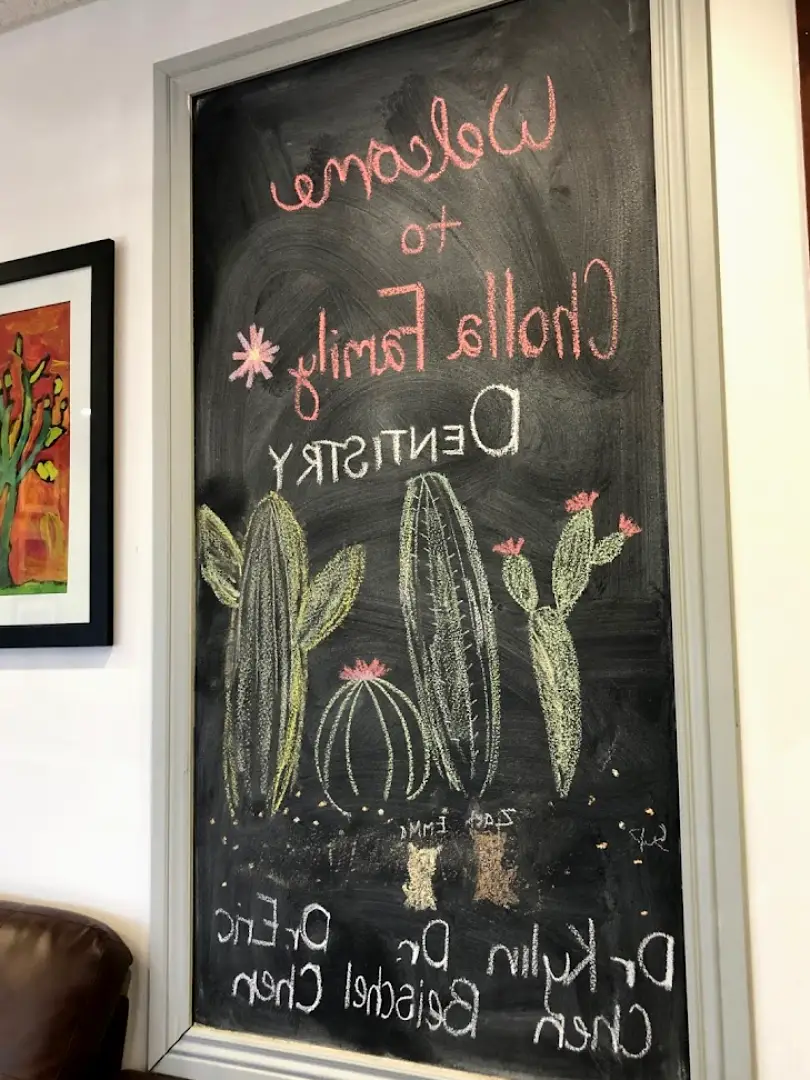 Welcome
to
Cholla Family
DENTISTRY
Zach EmMa
Dr Kylin Dr. Dr. Eric
Chen Beischel Chen